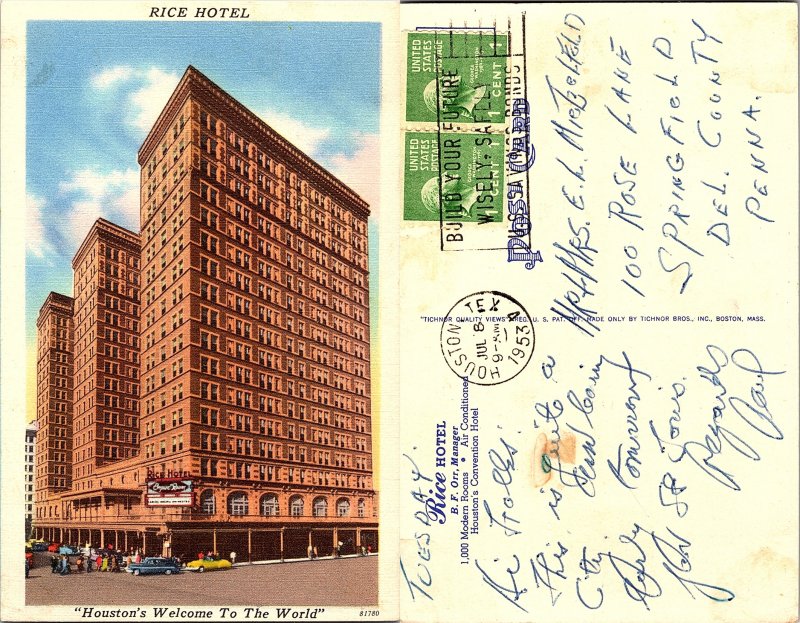 RICE HOTEL
RICE HOTEL
Empire Room
"Houston's Welcome To The World"
81780
UNITED STATES POSTAGE
1 CENT 1
UNITED STATES POSTAGE
1 CENT 1
BUILD YOUR FUTURE
WISELY, SAFELY
U.S. SAVINGS BONDS
Post Card
HOUSTON TEX
JUL 8
9-AM
1953
"TICHNOR QUALITY VIEWS," REG. U. S. PAT. OFF. MADE ONLY BY TICHNOR BROS., INC., BOSTON, MASS.
Rice HOTEL
B. F. Orr, Manager
1,000 Modern Rooms • Air Conditioned
Houston's Convention Hotel
TUESDAY.
Hi Folks:
This is quite a
City.
for St Louis.
Regards
Paul
MR & MRS. E. L.
100 ROSE LANE
SPRINGFIELD
DEL. COUNTY
PENNA.